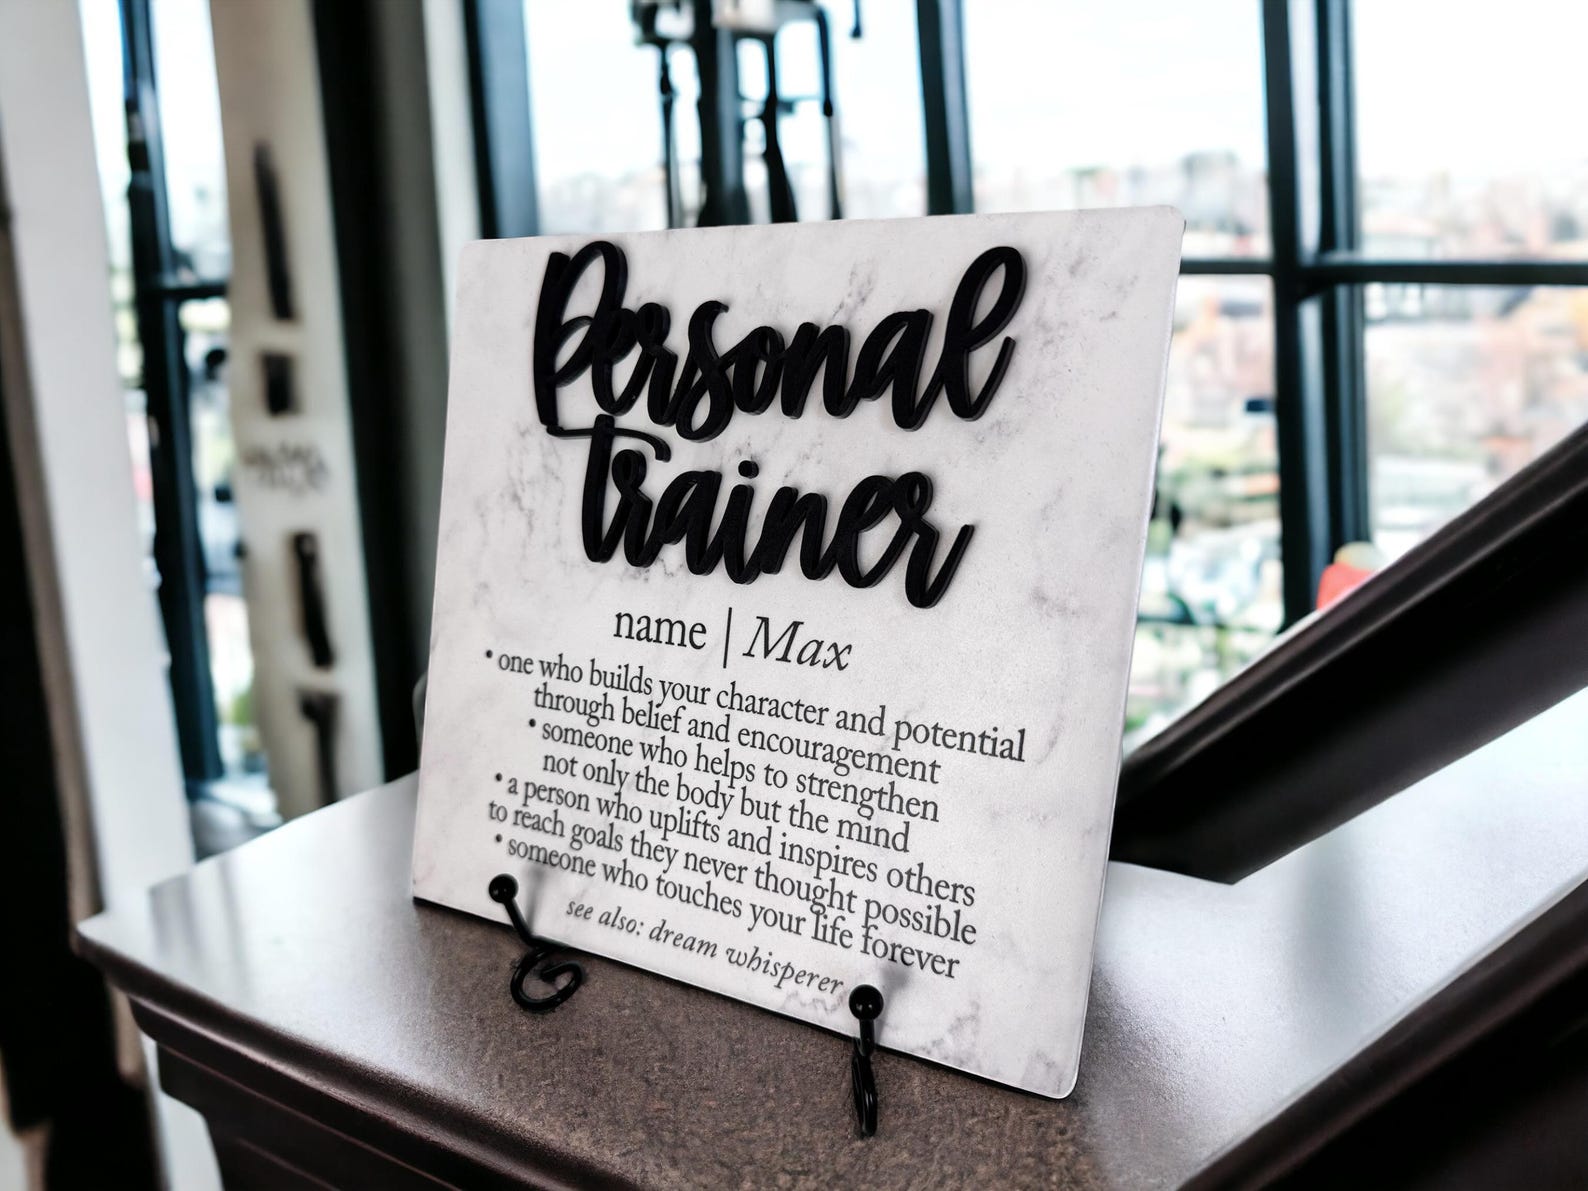 Personal
Trainer
name | Max
• one who builds your character and potential
through belief and encouragement
• someone who helps to strengthen
not only the body but the mind
• a person who uplifts and inspires others
to reach goals they never thought possible
• someone who touches your life forever
see also: dream whisperer